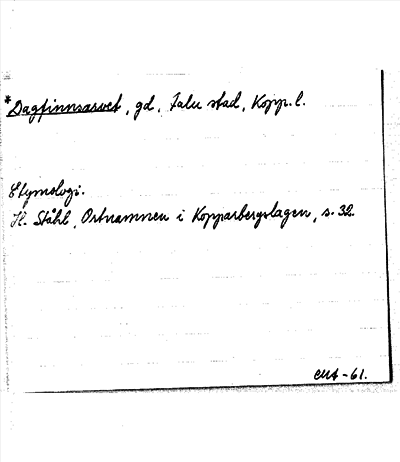 *Dagfinnsarvet, gd, Falu stad, Kopp. l.
Etymologi.
H. Ståhl, Ortnamnen i Kopparbergslagen, s. 32
CMA -61.